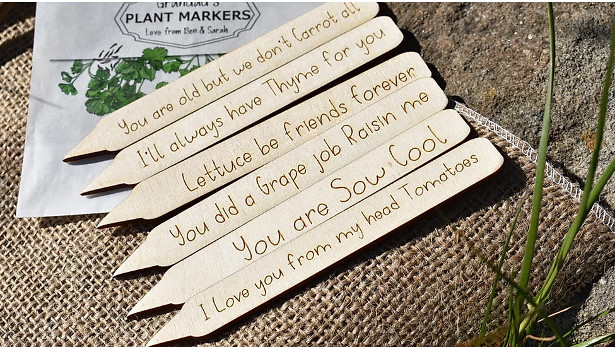 Grandad's
PLANT MARKERS
Love from Ben & Sarah
You are old but we don't Carrot all
I'll always have Thyme for you
Lettuce be friends forever
You did a Grape job Raisin me
You are Sow Cool
I Love you from my head Tomatoes